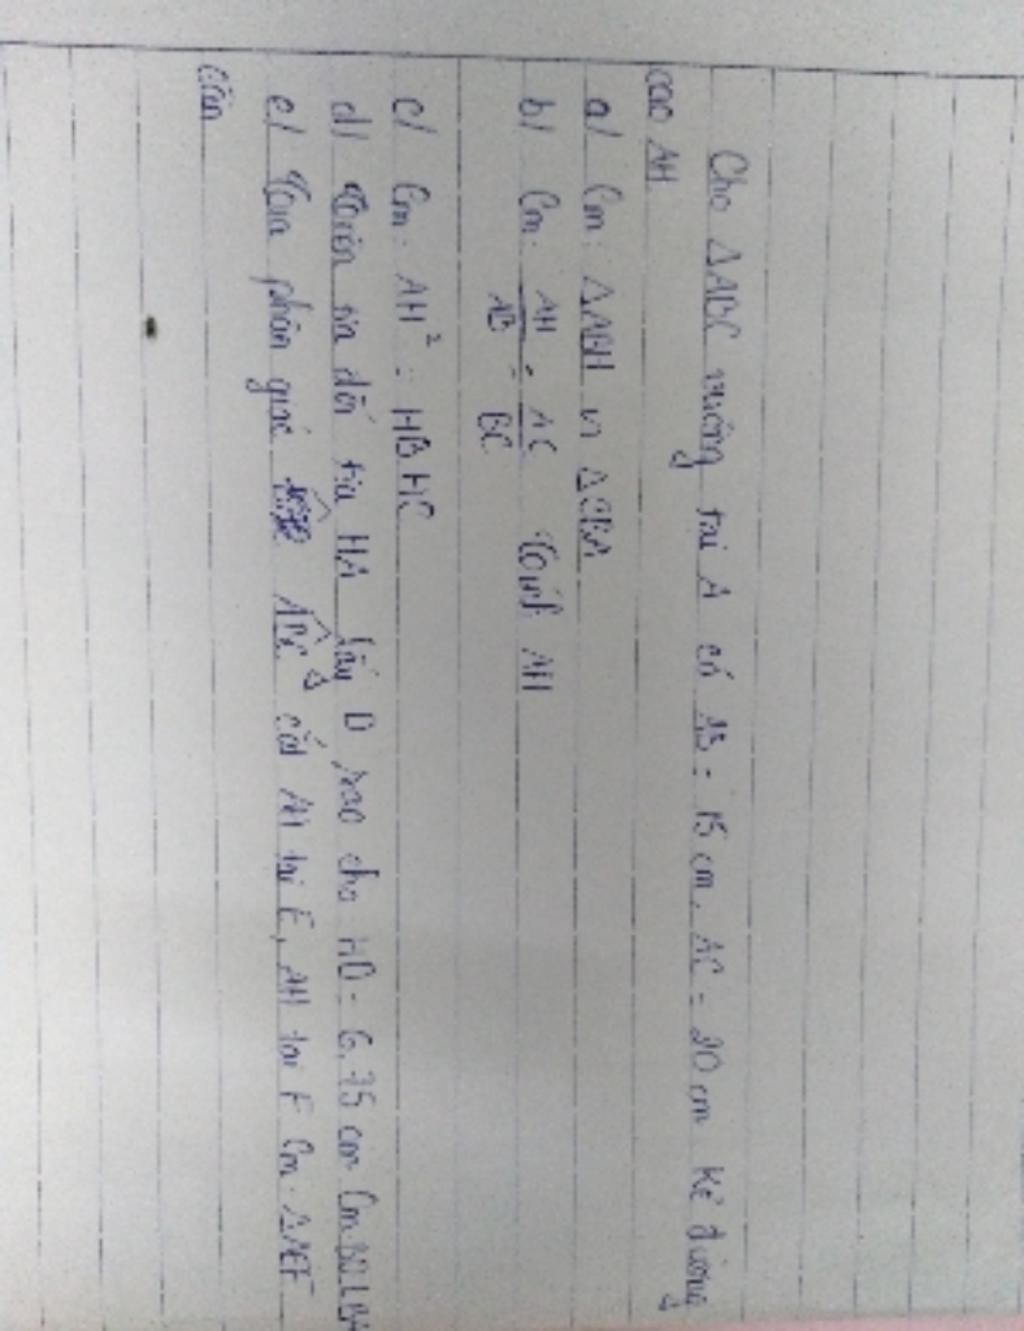 Cho ΔABC vuông tại A có AB = 15 cm, AC = 20 cm Kẻ đường
cao AH
a/ Cm: ΔABH ∽ ΔCBA
b/ Cm: AH/AB = AC/BC Tính AH
c/ Cm: AH² = HB.HC
d/ Trên tia đối tia HA lấy D sao cho HD = 6,75 cm Cm BD⊥
e/ Tia phân giác ABC cắt AH tại E, tại F Cm: ΔAEF
cân